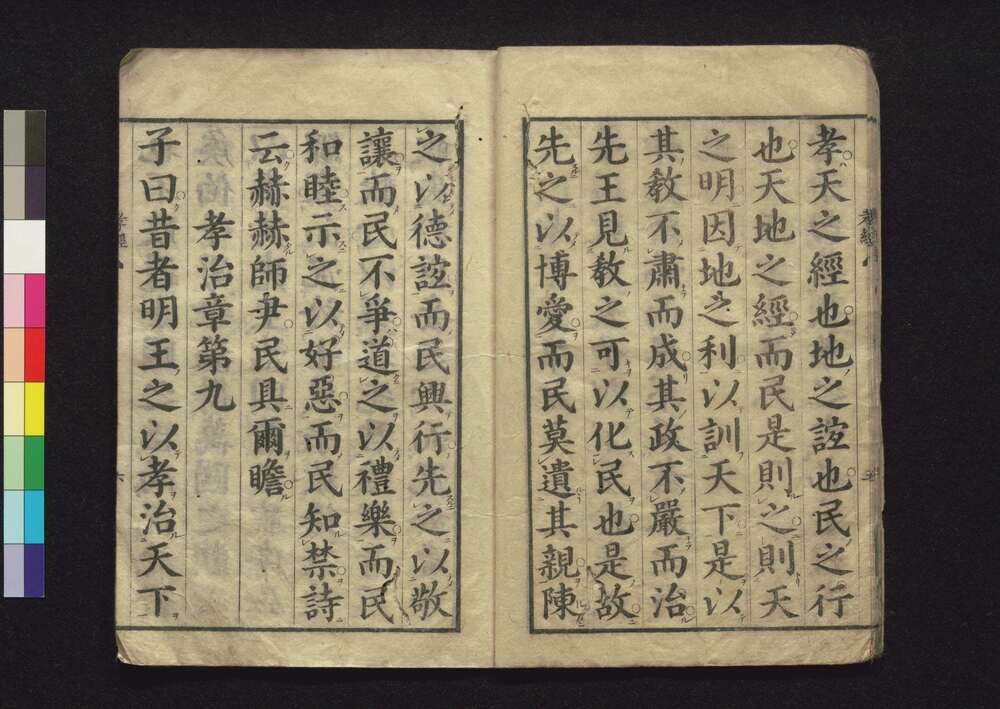 孝經
孝天之經也地之誼也民之行
也天地之經而民是則之則天
之明因地之利以訓天下是以
其教不肅而成其政不嚴而治
先王見教之可以化民也是故
先之以博愛而民莫遺其親陳
之以德誼而民興行先之以敬
讓而民不爭道之以禮樂而民
和睦示之以好惡而民知禁詩
云赫赫師尹民具爾瞻
孝治章第九
子曰昔者明王之以孝治天下